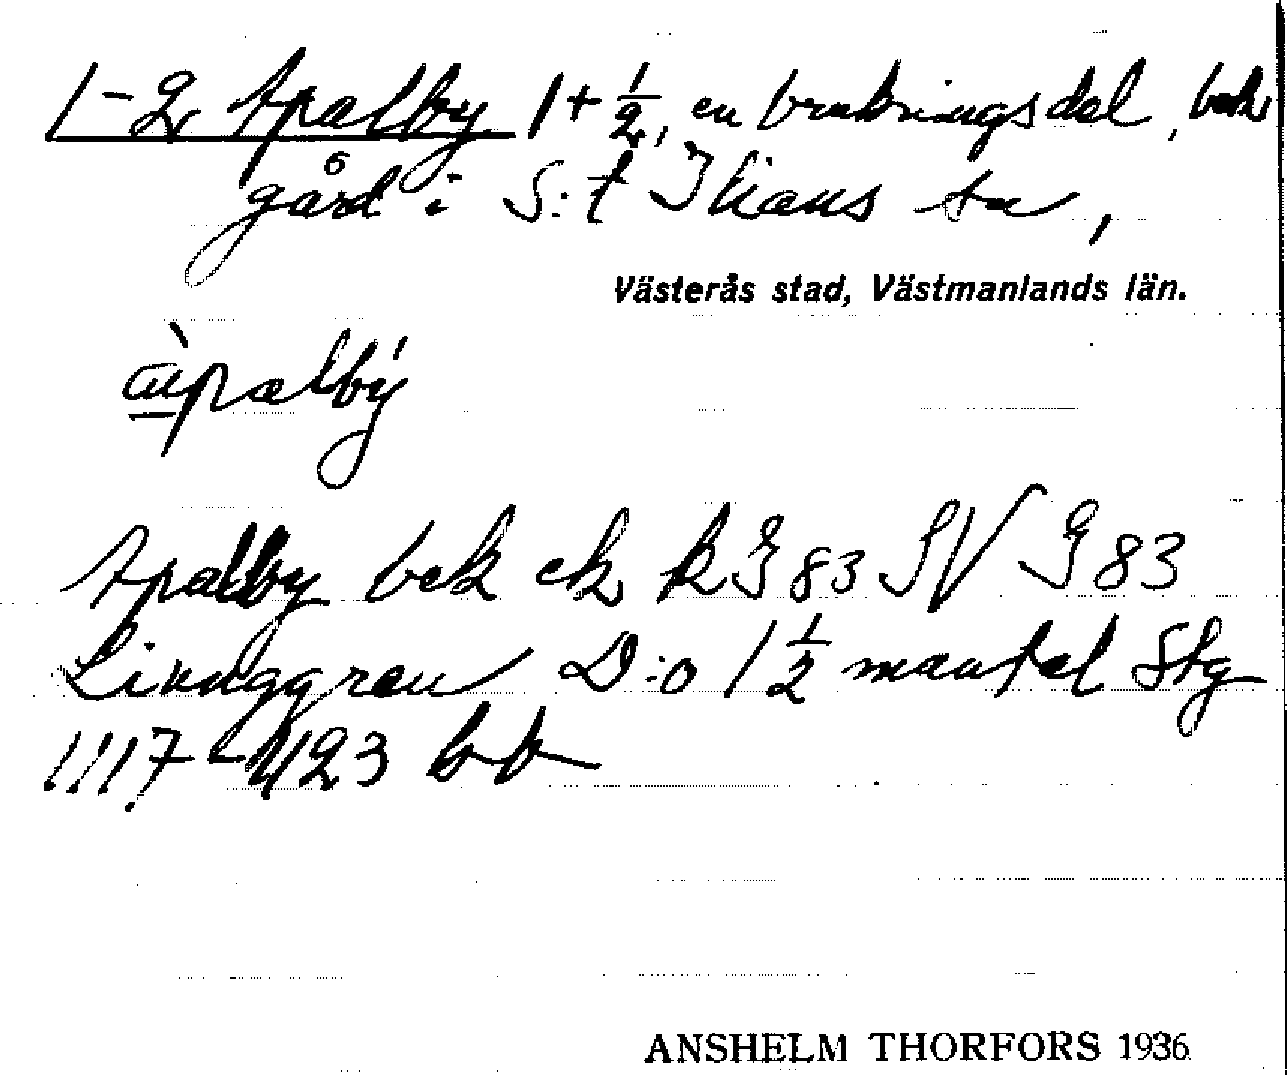 1-2 Apalby 1+½, en brukningsdel, bek
gård i S:t Ilians sn,
Västerås stad, Västmanlands län.
àpalbý
Apalby bek ek k J 83 SV J 83
Lindggren D:o 1 ½ mantel Stg
1117-423 bb
ANSHELM THORFORS 1936